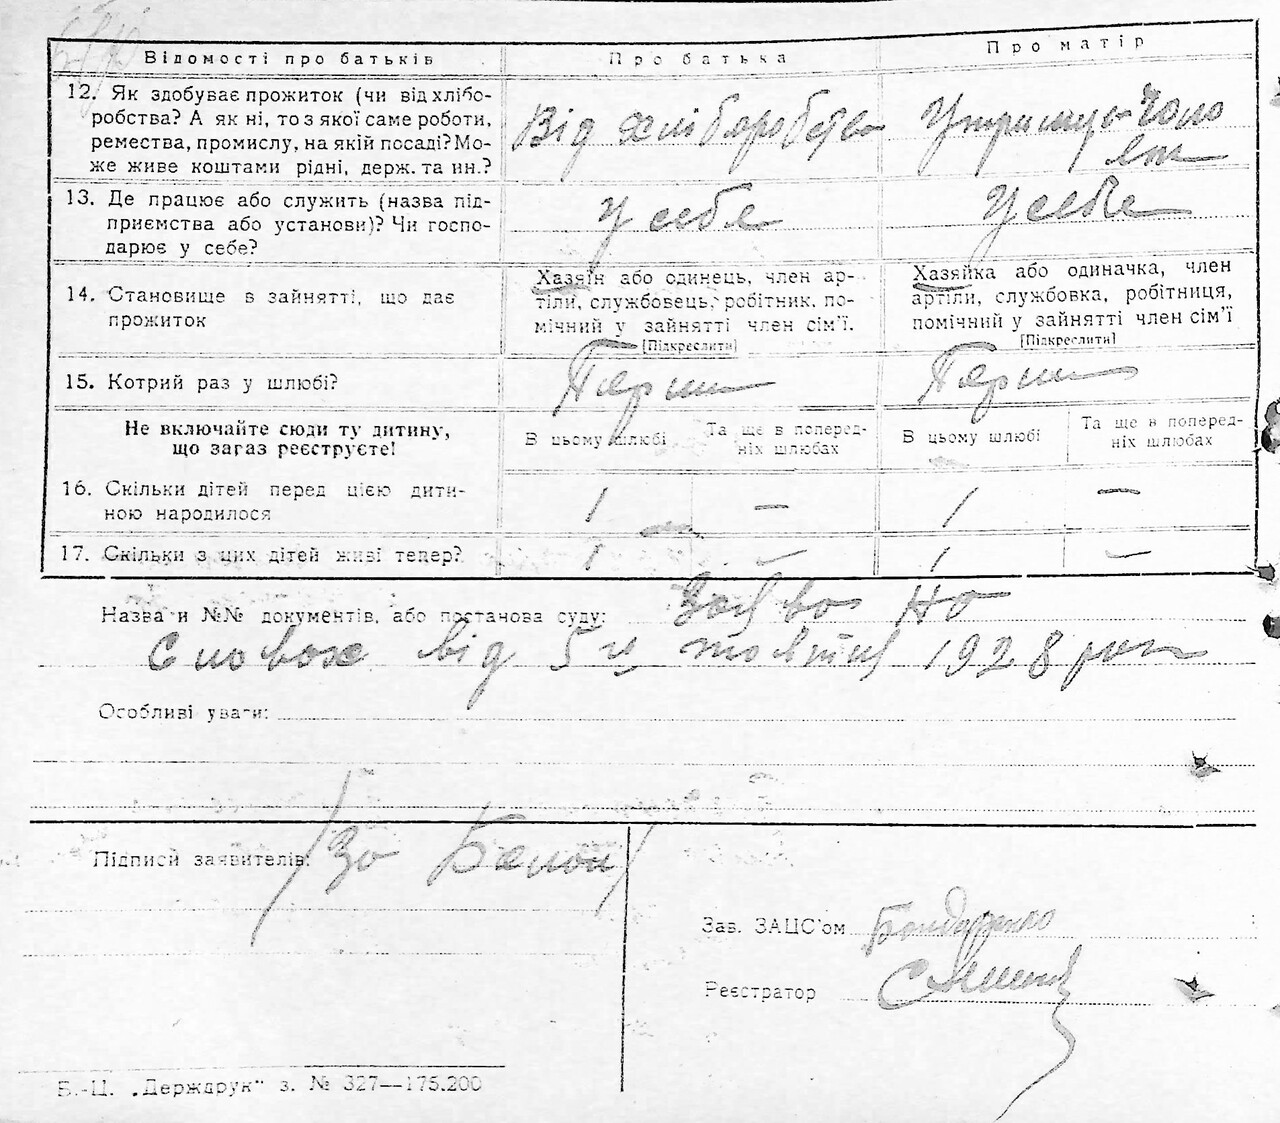 Відомості про батьків
Про батька
Про матір
12. Як здобуває прожиток (чи від хлібо-
робства? А як ні, то з якої саме роботи,
ремества, промислу, на якій посаді? Мо-
же живе коштами рідні, держ. та ин.?
Від хліборобства
Утримує Чоло
вік
13. Де працює або служить (назва під-
приємства або установи)? Чи госпо-
дарює у себе?
У себе
У себе
14. Становище в зайнятті, що дає
прожиток
Хазяїн або одинець, член ар-
тіли, службовець, робітник, по-
мічний у зайнятті член сім'ї.
[Підкреслити]
Хазяйка або одиначка, член
артіли, службовка, робітниця,
помічний у зайнятті член сім'ї
[Підкреслити]
15. Котрий раз у шлюбі?
Перши
Перши
Не включайте сюди ту дитину,
що зараз реєструєте!
В цьому шлюбі
Та ще в поперед-
ніх шлюбах
В цьому шлюбі
Та ще в поперед-
ніх шлюбах
16. Скільки дітей перед цією дити-
ною народилося
1 — 1 —
17. Скільки з цих дітей живі тепер?
1 — 1 —
Назва и №№ документів, або постанова суду: Заява На
Словах від 5го жовтня 1928 року
Особливі уваги:
Підписи заявителів:
Зав. ЗАЦС'ом Бондаренко
Реєстратор
Б.-Ц. „Держдрук" з. № 327—175.200